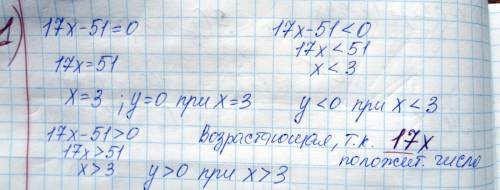 1)
17x-51=0
17x=51
x=3 ; y=0 при x=3
17x-51<0
17x<51
x<3
y<0 при x<3
17x-51>0
17x>51
x>3 y>0 при x>3
Возрастающая, т.к. 17x
положит. число